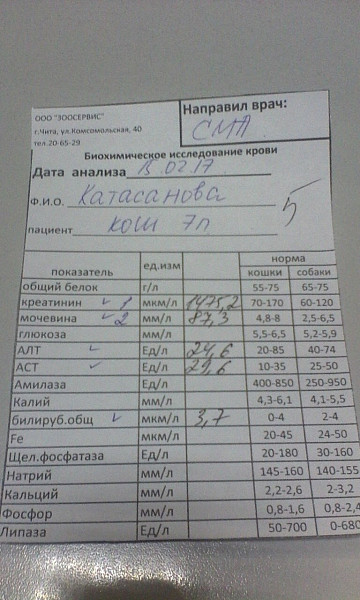 ООО "ЗООСЕРВИС"
г.Чита, ул.Комсомольская, 40
тел.20-65-29
Направил врач:
СМА
Биохимическое исследование крови
Дата анализа 13.02.17
Ф.И.О. Катасанова
пациент кош 7л
5
показатель ед.изм норма
кошки собаки
общий белок г/л 55-75 65-75
креатинин 1 мкм/л 1475,2 70-170 60-120
мочевина 2 мм/л 87,3 4,8-8 2,5-6,5
глюкоза мм/л 5,5-6,5 5,2-5,9
АЛТ Ед/л 24,6 20-85 40-74
АСТ Ед/л 29,6 10-35 25-50
Амилаза Ед/л 400-850 250-950
Калий мм/л 4,3-6,1 4,1-5,5
билируб.общ мкм/л 3,7 0-4 2-4
Fe мкм/л 20-45 24-50
Щел.фосфатаза Ед/л 20-180 30-160
Натрий мм/л 145-160 140-155
Кальций мм/л 2,2-2,6 2-3,2
Фосфор мм/л 0,8-1,6 0,8-2,4
Липаза Ед/л 50-700 0-680